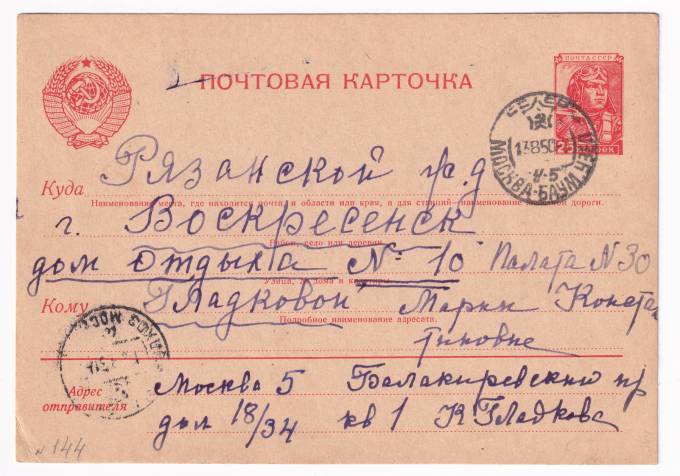 ПОЧТОВАЯ КАРТОЧКА
ПОЧТА СССР
25 КОП
13850
МОСКВА-БАУМ
Куда Рязанской ж.д
Наименование места, где находится почта и области или края, а для станций наименование железной дороги.
г. Воскресенск
Район, село или деревня
дом отдыха № 10 Палата N 30
Улица, № дома и квартиры
Кому Гладковой Марии Констан
Подробное наименование адресата.
тиновне
Адрес отправителя
Москва 5 Балакиревский пр
дом 18/34 кв 1 К Гладкова
N 144